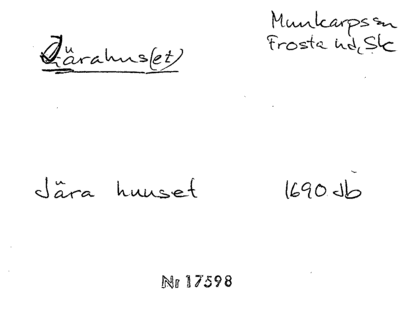 Munkarps sn
Frosta hd, Sk
Järahus(et)
Jära huuset 1690 Jb
Nr 17598